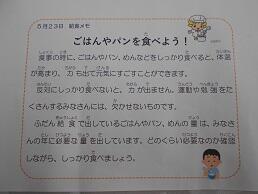 5月23日 給食メモ
ごはんやパンを食べよう!
食事の時に、ごはんやパン、めんなどをしっかり食べると、体温
が高まり、力も出て元気にすごすことができます。
反対にしっかり食べないと、力が出ません。運動や勉強をた
くさんするみなさんには、欠かせないものです。
ふだん給食で出しているごはんやパン、めんの量は、みなさ
んの年に必要な量を出しています。どのくらい必要なのか確認
しながら、しっかり食べましょう。